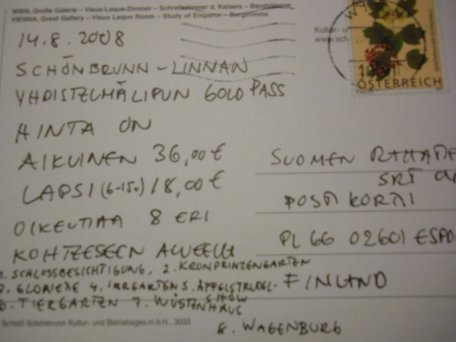 WIEN, Große Galerie - Vieux-Laque-Zimmer - Schreibzimmer d. Kaisers - Berglzimmer
VIENNA, Great Gallery - Vieux Laque Room - Study of Emperor - Berglrooms
Kultur- u
www.sch
ÖSTERREICH
14.8.2008
SCHÖNBRUNN-LINNAN
YHDISTELMÄLIPUN GOLD PASS
HINTA ON
AIKUINEN 36,00€
LAPSI (6-15v.) 18,00€
OIKEUTTAA 8 ERI
KOHTEESEEN ALUEELLA
1. SCHLOSSBESICHTIGUNG, 2. KRONPRINZENGARTEN
3. GLORIETTE 4. IRRGARTEN 5. ÄPFELSTRUDEL-
SHOW
6. TIERGARTEN 7. WÜSTENHAUS
8. WAGENBURG
SUOMEN
SRT
POSTIKORTTI
PL 66 02601 ESPO
FINLAND
Schloß Schönbrunn Kultur- und Betriebsges.m.b.H., 3033